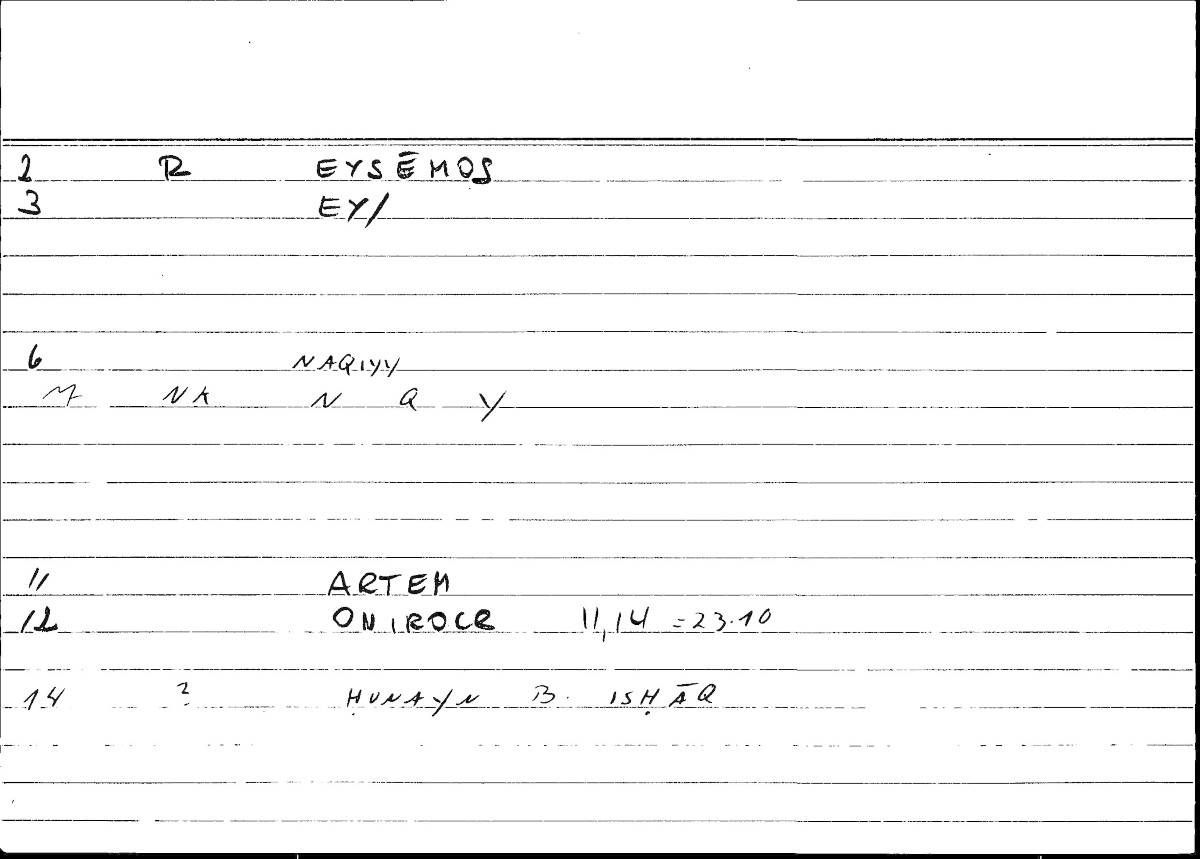 2 R EYSĒMOS
3 EY/
6 NAQIYY
M NA N Q Y
11 ARTEM
12 ONIROCR 11,14 =23.10
14 ? ḤUNAYN B. ISḤĀQ